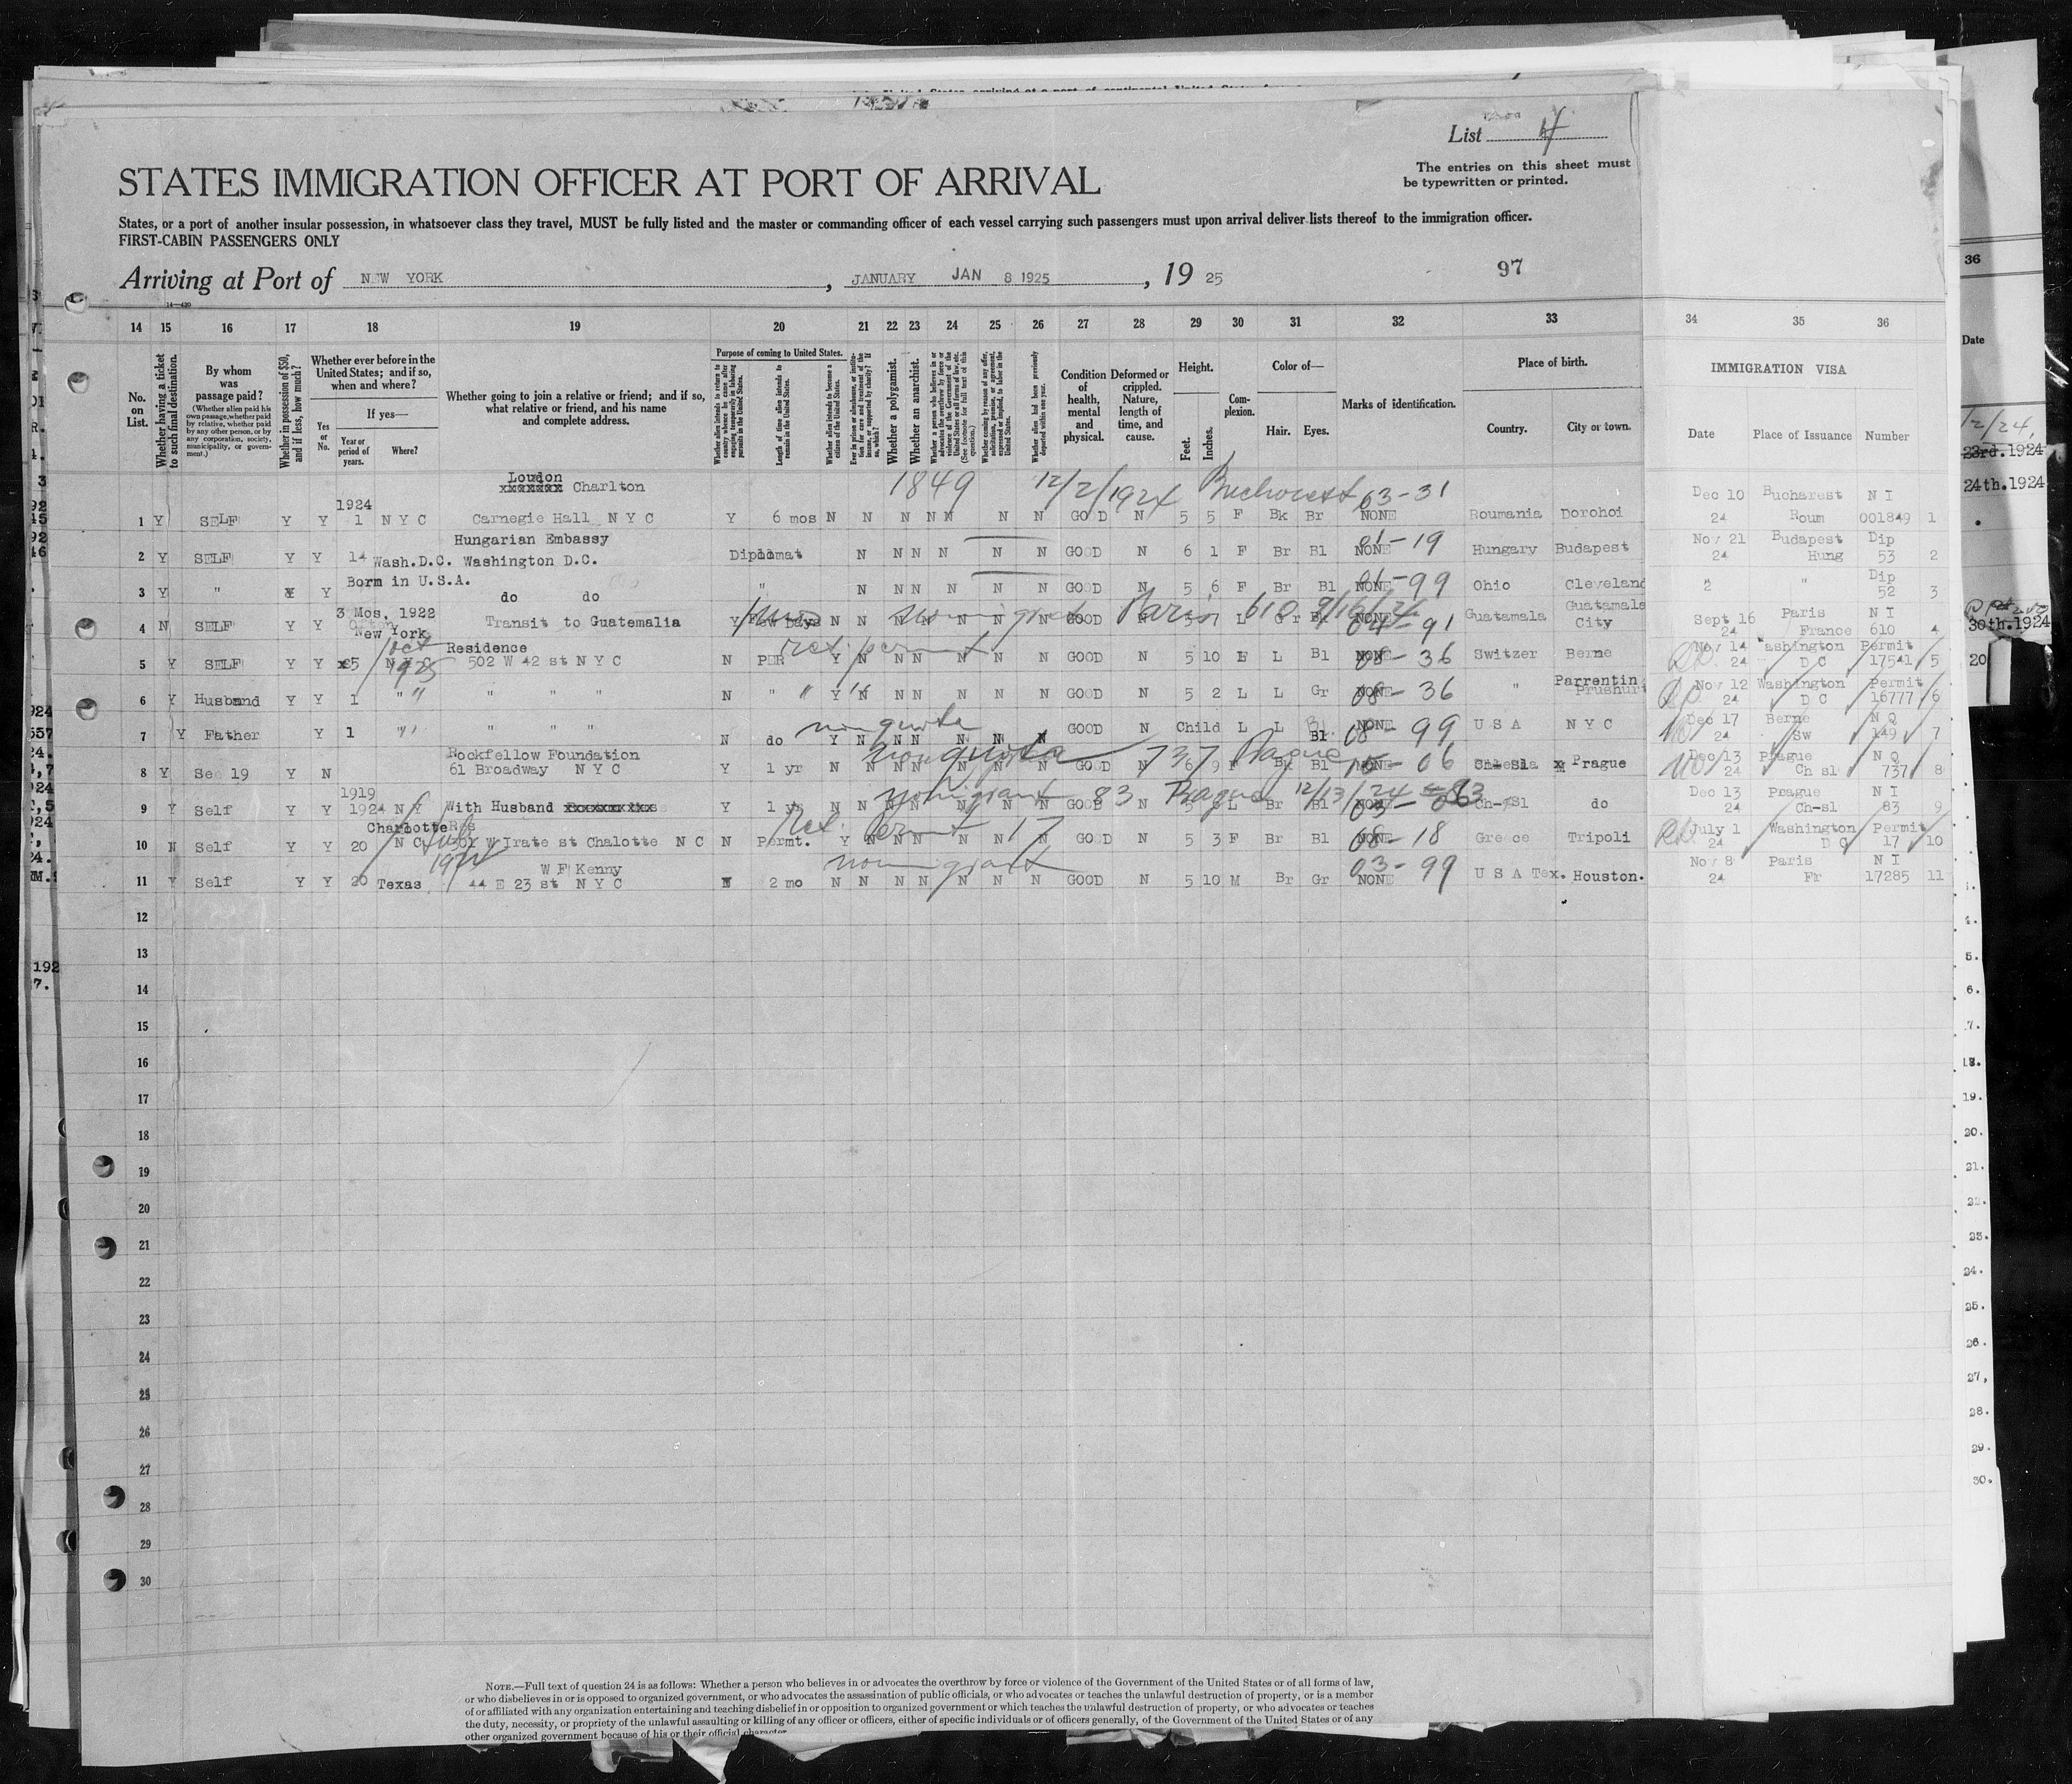 List 4
The entries on this sheet must
be typewritten or printed.
STATES IMMIGRATION OFFICER AT PORT OF ARRIVAL
States, or a port of another insular possession, in whatsoever class they travel, MUST be fully listed and the master or commanding officer of each vessel carrying such passengers must upon arrival deliver lists thereof to the immigration officer.
FIRST-CABIN PASSENGERS ONLY
Arriving at Port of NEW YORK, JANUARY JAN 8 1925, 19 25
97
14—420
14 15 16 17 18 19 20 21 22 23 24 25 26 27 28 29 30 31 32 33 34 35 36
No. on List.
Whether having a ticket to such final destination.
By whom was passage paid?
(Whether alien paid his own passage, whether paid by relative, whether paid by any other person, or by any corporation, society, municipality, or government.)
Whether in possession of $50, and if less, how much?
Whether ever before in the United States; and if so, when and where?
If yes—
Yes or No.
Year or period of years.
Where?
Whether going to join a relative or friend; and if so, what relative or friend, and his name and complete address.
Purpose of coming to United States.
Whether alien intends to return to country whence he came after engaging temporarily in laboring pursuits in the United States.
Length of time alien intends to remain in the United States.
Whether alien intends to become a citizen of the United States.
Whether a polygamist.
Whether an anarchist.
Whether alien had been previously deported within one year.
Condition of health, mental and physical.
Deformed or crippled. Nature, length of time, and cause.
Height.
Feet.
Inches.
Complexion.
Color of—
Hair.
Eyes.
Marks of identification.
Place of birth.
Country.
City or town.
IMMIGRATION VISA
Date Place of Issuance Number
London Charlton 1849 12/2/1924 Bucharest 03-31
1924 Dec 10 Bucharest N I
1 Y SELF Y Y 1 N Y C Carnegie Hall N Y C Y 6 mos N N N N N N N N GOOD N 5 5 F Bk Br NONE Roumania Dorohoi 24 Roum 001849 1
Hungarian Embassy 01-19 Nov 21 Budapest Dip
2 Y SELF Y Y 14 Wash.D.C. Washington D.C. Diplomat N N N N N N GOOD N 6 1 F Br Bl NONE Hungary Budapest 24 Hung 53 2
Born in U.S.A. 01-99 " " Dip
3 Y " Y Y do do " N N N N N N GOOD N 5 6 F Br Bl NONE Ohio Cleveland 52 3
3 Mos, 1922 Paris 610 9/16/24 Guatamala Sept 16 Paris N I
4 N SELF Y Y New York Transit to Guatemalia Y N N GOOD L NONE 04-91 Guatamala City 24 France 610 4
Oct 1925 Residence ret. permit Nov 14 Washington Permit
5 Y SELF Y Y 502 W 42 st N Y C N PER Y N N N N N N N GOOD N 5 10 F L Bl NONE 08-36 Switzer Berne 24 D C 17541 5
Parrentin Nov 12 Washington Permit
6 Y Husband Y Y 1 " " " " " N " " Y N N N N N N GOOD N 5 2 L L Gr NONE 08-36 " Prushurt 24 D C 16777 6
non quota Dec 17 Berne N Q
7 Y Father Y 1 " " " " N do Y N N N N N N GOOD N Child L L Bl NONE 08-99 U S A N Y C 24 Sw 149 7
Rockfellow Foundation non quota 737 Prague Dec 13 Prague N Q
8 Y See 19 Y N 61 Broadway N Y C Y 1 yr N N N N N N N N GOOD N 6 9 F Bl NONE 06 Prague 24 Ch sl 737 8
1919 nonigrant 83 Prague 12/13/24 Dec 13 Prague N I
9 Y Self Y Y 1924 N Y With Husband Y 1 yr N N N N N N N N GOOD N 5 L Br Bl 03-06 Ch-Sl do 24 Ch-sl 83 9
Charlotte Res ret. Permit 17 July 1 Washington Permit
10 N Self Y Y 20 N C W Irate st Chalotte N C N Permt. Y N N N N N N N GOOD N 5 3 F Br Bl NONE 08-18 Greece Tripoli 24 D C 17 10
1924 W F Kenny nonigrant 03-99 Nov 8 Paris N I
11 Y Self Y Y 20 Texas 44 E 23 st N Y C 2 mo N N N N N N N N GOOD N 5 10 M Br Gr NONE U S A Tex. Houston. 24 Fr 17285 11
12
13
14
15
16
17
18
19
20
21
22
23
24
25
26
27
28
29
30
36
Date
12/24,
23rd.1924
24th.1924
30th.1924
20
NOTE.—Full text of question 24 is as follows: Whether a person who believes in or advocates the overthrow by force or violence of the Government of the United States or of all forms of law,
or who disbelieves in or is opposed to organized government, or who advocates the assassination of public officials, or who advocates or teaches the unlawful destruction of property, or is a member
of or affiliated with any organization entertaining and teaching disbelief in or opposition to organized government or which teaches the unlawful destruction of property, or who advocates or teaches
the duty, necessity, or propriety of the unlawful assaulting or killing of any officer or officers, either of specific individuals or of officers generally, of the Government of the United States or of any
other organized government because of his or their official character